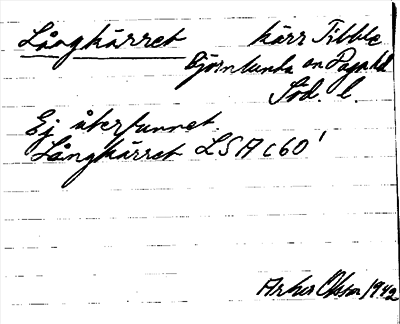 Långkärret kärr Tibble
Björnlunda sn Daga hd
Söd. l.
Ej återfunnet.
Långkärret LSA c60'
Olsson 1942